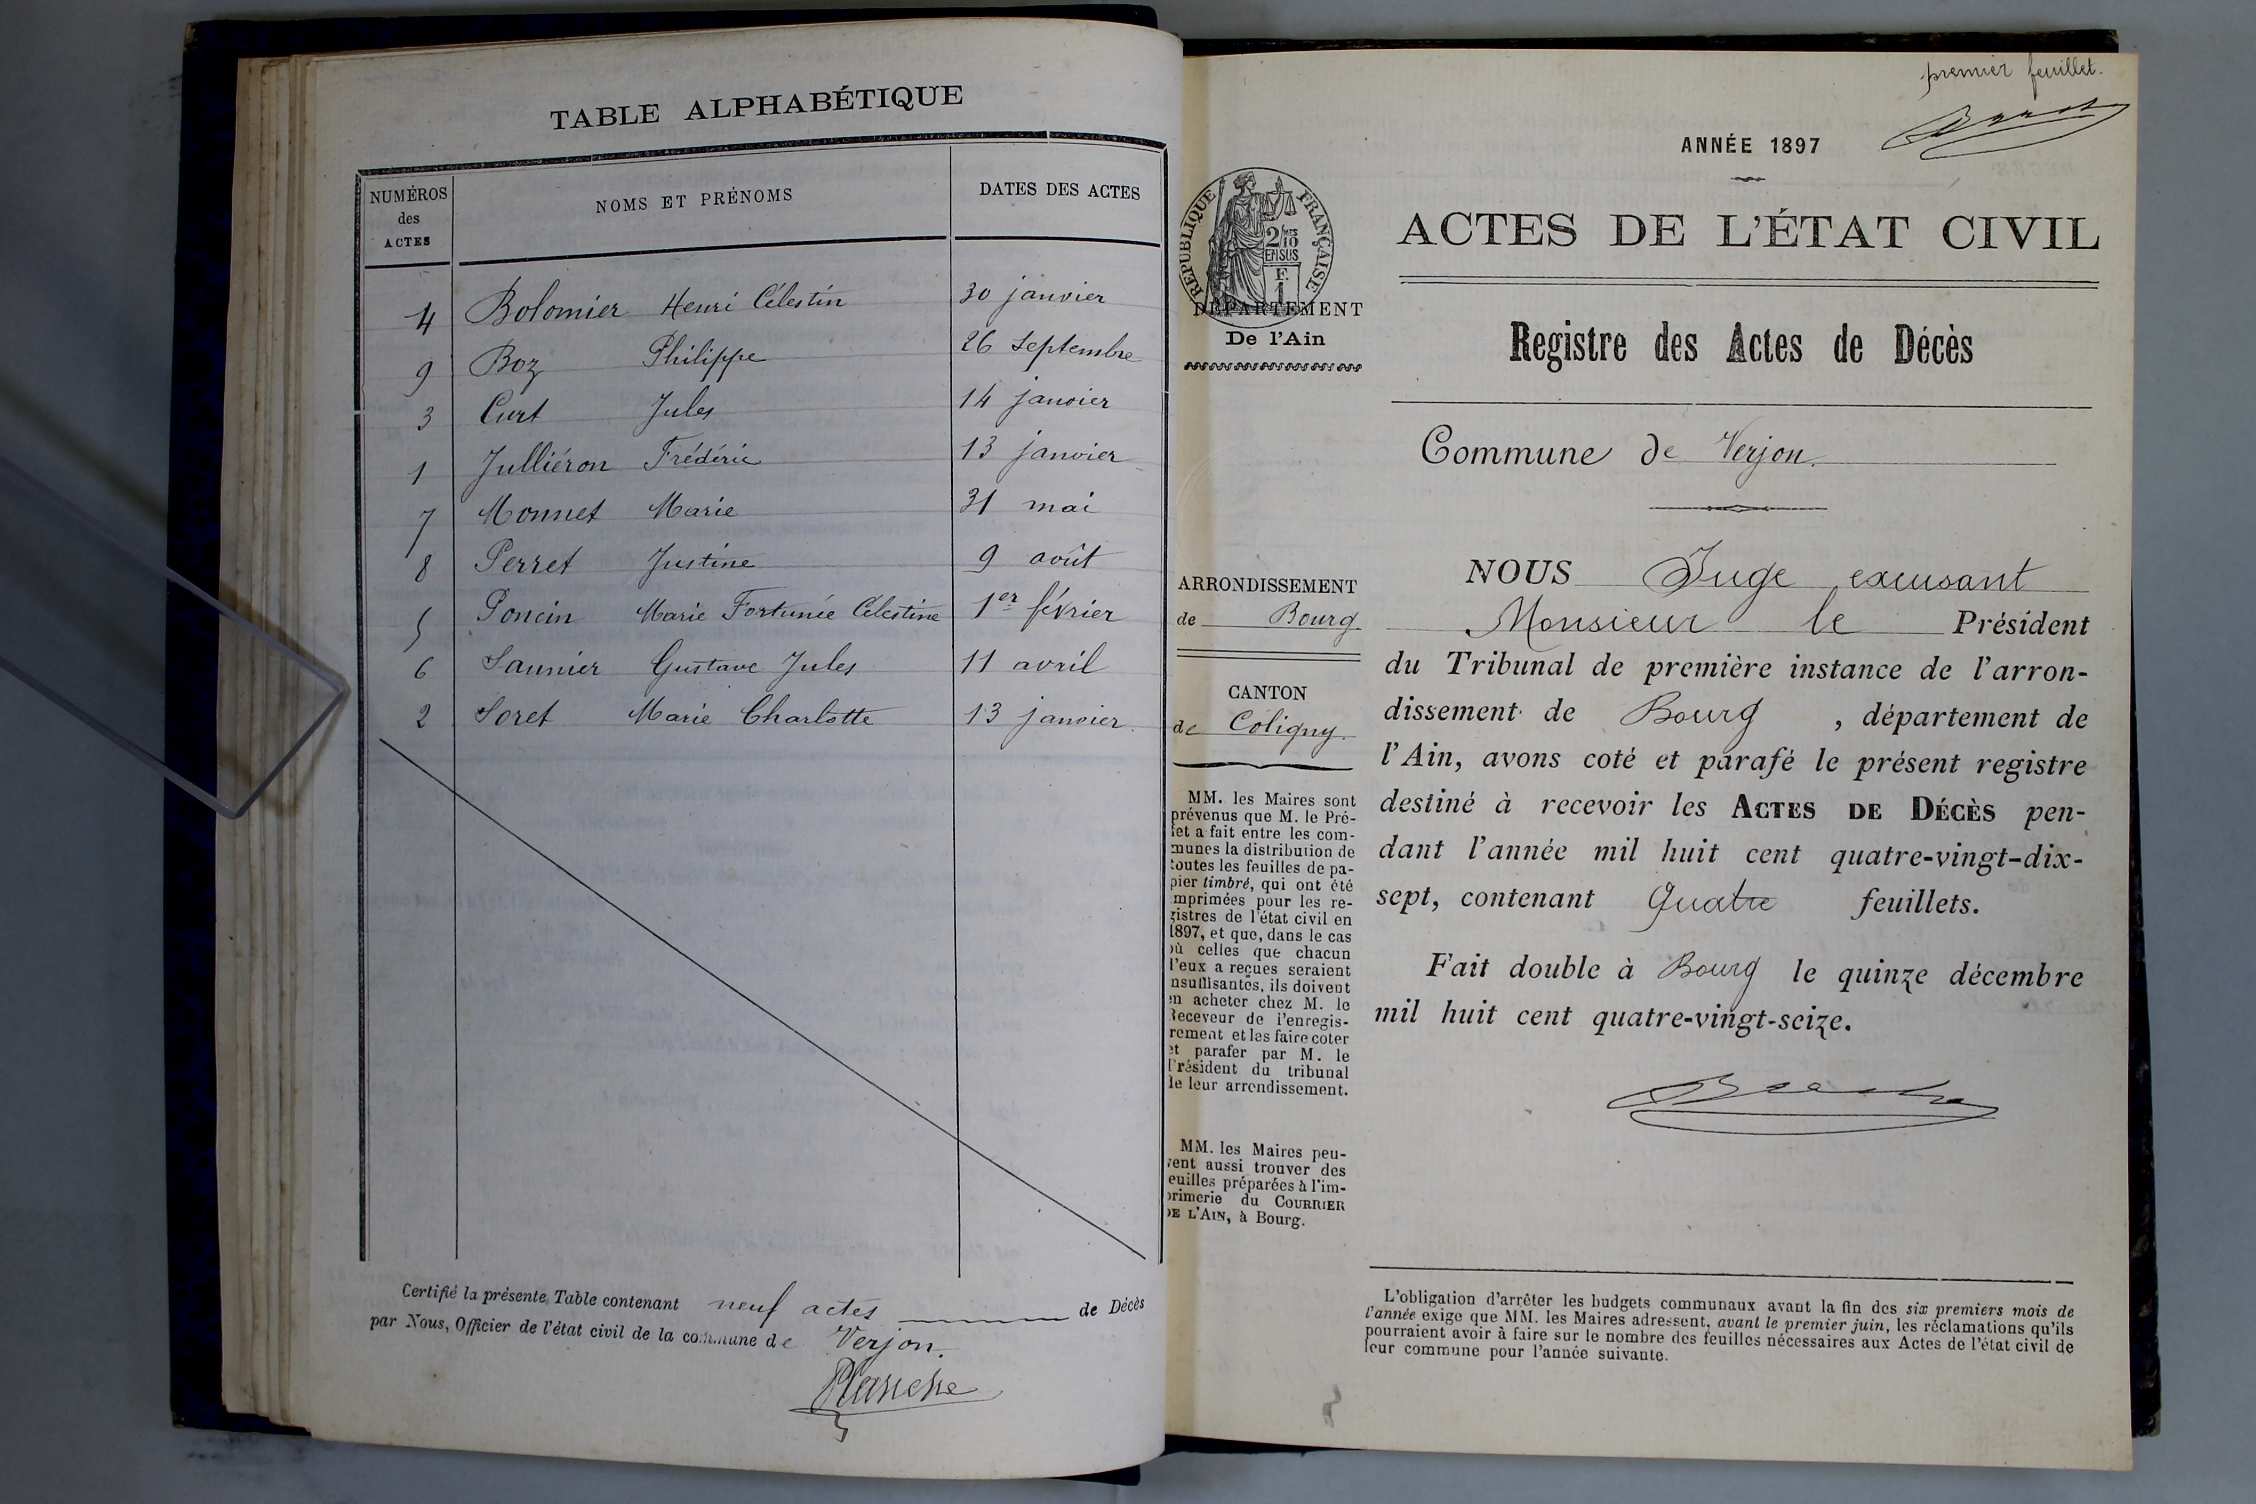 TABLE ALPHABÉTIQUE
NUMÉROS des ACTES
NOMS ET PRÉNOMS
DATES DES ACTES
4 Bolomier Henri Célestin 30 janvier
9 Boz Philippe 26 septembre
3 Curt Jules 14 janvier
1 Julliéron Frédéric 13 janvier
7 Monnet Marie 31 mai
8 Perret Justine 9 août
5 Poncin Marie Fortunée Célestine 1er février
6 Saunier Gustave Jules 11 avril
2 Soret Marie Charlotte 13 janvier
Certifié la présente Table contenant neuf actes de Décès
par Nous, Officier de l'état civil de la commune de Verjon.
Planche
premier feuillet.
ANNÉE 1897
RÉPUBLIQUE FRANÇAISE
2/10
EN SUS
F.
1
DÉPARTEMENT
De l'Ain
ARRONDISSEMENT
de Bourg
CANTON
de Coligny.
MM. les Maires sont
prévenus que M. le Pré-
fet a fait entre les com-
munes la distribution de
toutes les feuilles de pa-
pier timbré, qui ont été
imprimées pour les re-
gistres de l'état civil en
1897, et que, dans le cas
où celles que chacun
d'eux a reçues seraient
insuffisantes, ils doivent
en acheter chez M. le
Receveur de l'enregis-
rement et les faire coter
et parafer par M. le
Président du tribunal
de leur arrondissement.
MM. les Maires peu-
vent aussi trouver des
feuilles préparées à l'im-
primerie du COURRIER
DE L'AIN, à Bourg.
ACTES DE L'ÉTAT CIVIL
Registre des Actes de Décès
Commune de Verjon.
NOUS Juge excusant
Monsieur le Président
du Tribunal de première instance de l'arron-
dissement de Bourg, département de
l'Ain, avons coté et parafé le présent registre
destiné à recevoir les ACTES DE DÉCÈS pen-
dant l'année mil huit cent quatre-vingt-dix-
sept, contenant Quatre feuillets.
Fait double à Bourg le quinze décembre
mil huit cent quatre-vingt-seize.
L'obligation d'arrêter les budgets communaux avant la fin des six premiers mois de
l'année exige que MM. les Maires adressent, avant le premier juin, les réclamations qu'ils
pourraient avoir à faire sur le nombre des feuilles nécessaires aux Actes de l'état civil de
leur commune pour l'année suivante.